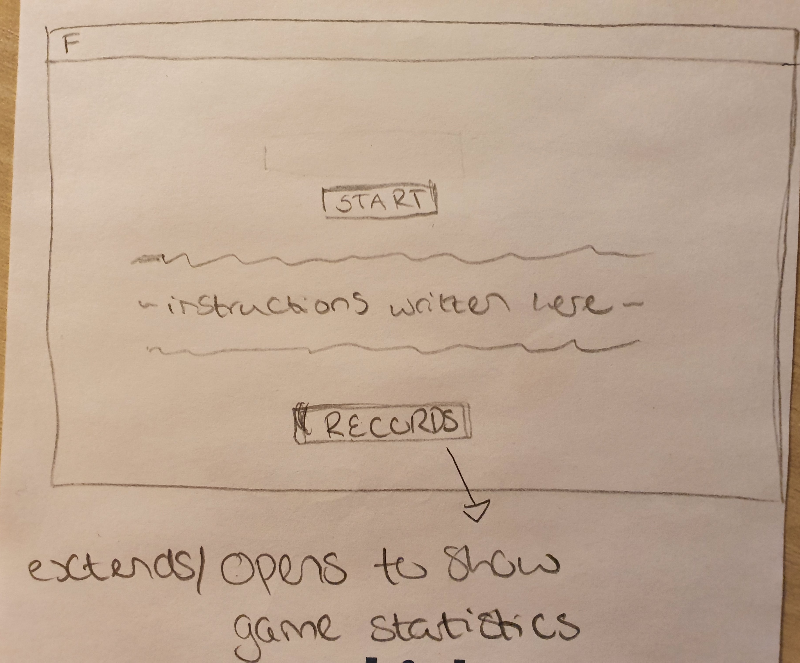 F
START
~instructions written here~
RECORDS
extends/ opens to show
game statistics